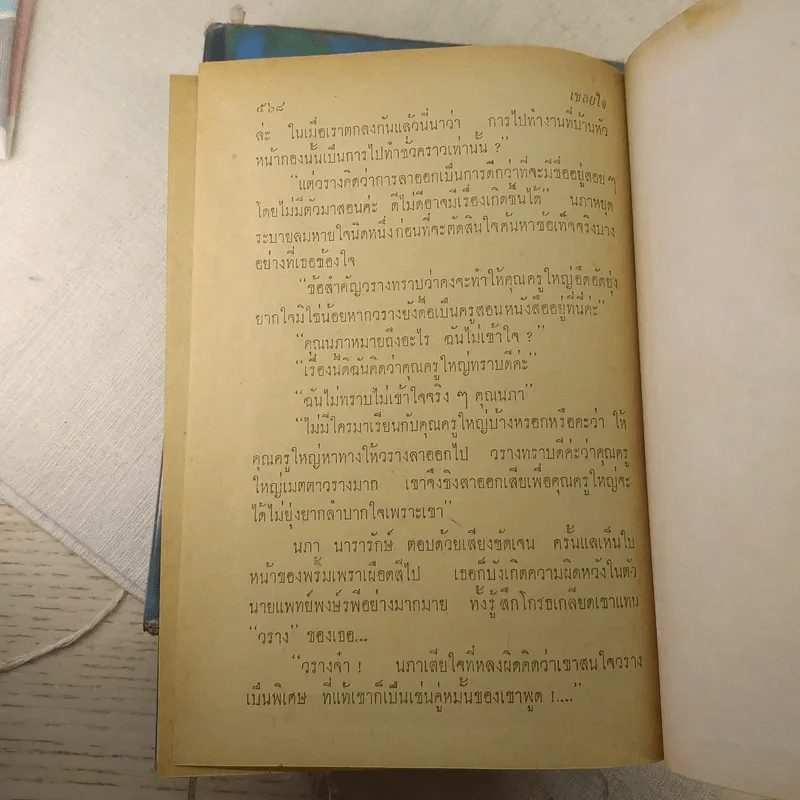 ๕๖๘ เชลยใจ
ล่ะ ในเมื่อเราตกลงกันแล้วนี่นาว่า การไปทำงานที่บ้านหัว
หน้ากองนั้นเป็นการไปทำชั่วคราวเท่านั้น ?”
“แต่วรางคิดว่าการลาออกเป็นการดีกว่าที่จะมีชื่ออยู่ลอย ๆ
โดยไม่มีตัวมาสอนค่ะ ดีไม่ดีอาจมีเรื่องเกิดขึ้นได้” นภาหยุด
ระบายลมหายใจนิดหนึ่งก่อนที่จะตัดสินใจค้นหาข้อเท็จจริงบาง
อย่างที่เธอข้องใจ
“ข้อสำคัญวรางทราบว่าคงจะทำให้คุณครูใหญ่อึดอัดยุ่ง
ยากใจมิใช่น้อยหากวรางยังดื้อเป็นครูสอนหนังสืออยู่ที่นี่ค่ะ”
“คุณนภาหมายถึงอะไร ฉันไม่เข้าใจ ?”
“เรื่องนี้ดิฉันคิดว่าคุณครูใหญ่ทราบดีค่ะ”
“ฉันไม่ทราบไม่เข้าใจจริง ๆ คุณนภา”
“ไม่มีใครมาเรียนกับคุณครูใหญ่บ้างหรอกหรือคะว่า ให้
คุณครูใหญ่หาทางให้วรางลาออกไป วรางทราบดีค่ะว่าคุณครู
ใหญ่เมตตาวรางมาก เขาจึงชิงลาออกเสียเพื่อคุณครูใหญ่จะ
ได้ไม่ยุ่งยากลำบากใจเพราะเขา”
นภา นารารักษ์ ตอบด้วยเสียงชัดเจน ครั้นแลเห็นใบ
หน้าของพริ้มเพราเผือดสีไป เธอก็บังเกิดความผิดหวังในตัว
นายแพทย์พงษ์รพีอย่างมากมาย ทั้งรู้สึกโกรธเกลียดเขาแทน
“วราง” ของเธอ...
“วรางจ๋า ! นภาเสียใจที่หลงผิดคิดว่าเขาสนใจวราง
เป็นพิเศษ ที่แท้เขาก็เป็นเช่นคู่หมั้นของเขาพูด !....”